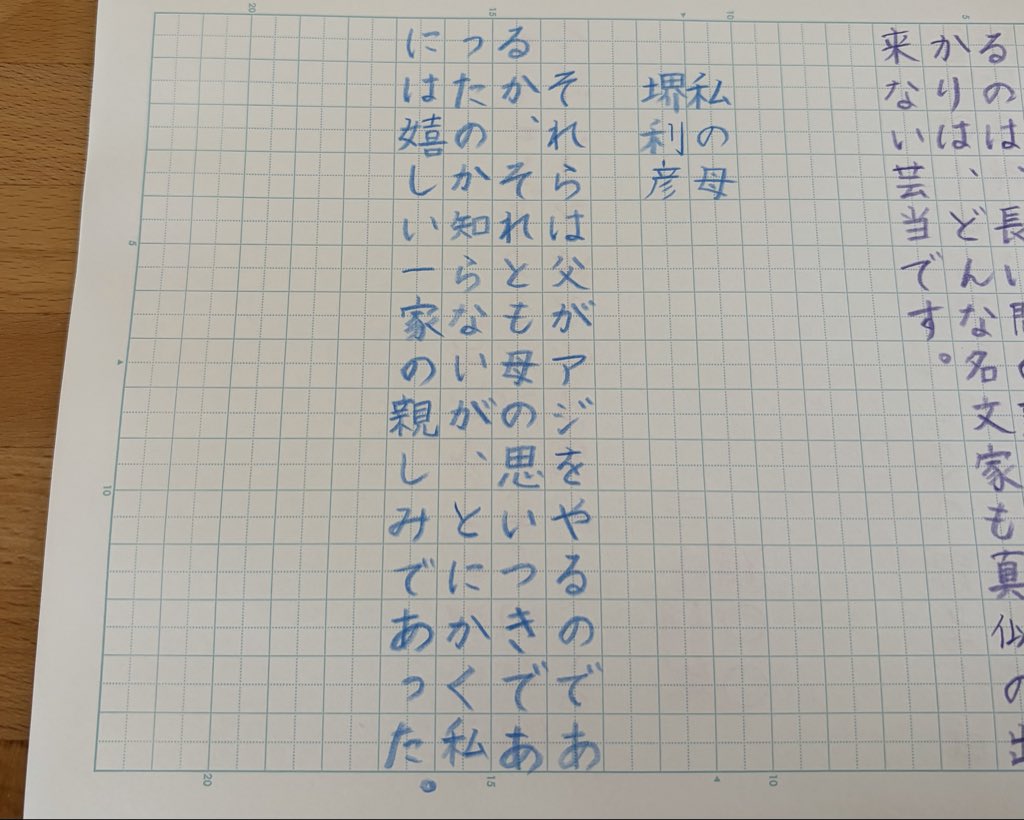 20 15 10 5
るのは、長い
かりは、どんな名文家も真似の出
来ない芸当です。
私の母
堺利彦
それらは父がアジをやるのであ
るか、それとも母の思いつきであ
ったのか知らないが、とにかく私
には嬉しい一家の親しみであった。
5
10
20 15 10